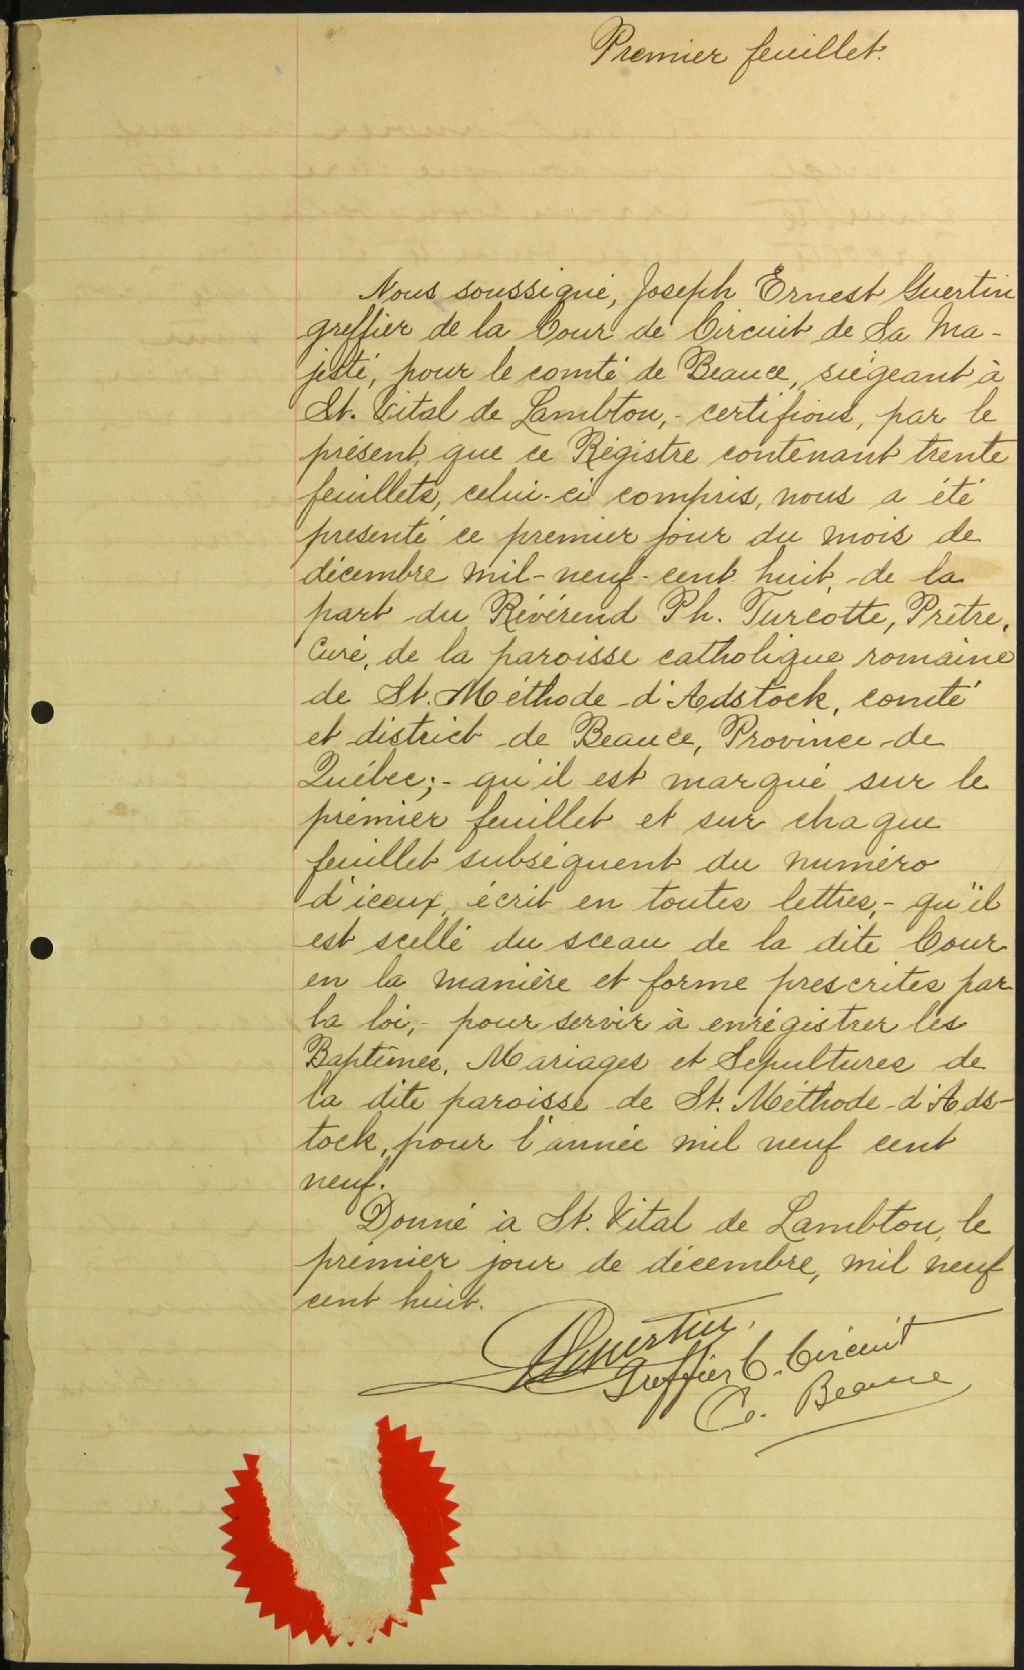 Premier feuillet.
Nous soussigné, Joseph Ernest Guertin
greffier de la Cour de Circuit de Sa Ma-
jesté, pour le comté de Beauce, siégeant à
St. Vital de Lambton, - certifions, par le
présent, que ce Régistre contenant trente
feuillets, celui-ci compris, nous a été
présenté ce premier jour du mois de
décembre mil-neuf-cent huit, de la
part du Révérend Ph. Turcotte, Prêtre,
Curé, de la paroisse catholique romaine
de St. Méthode d'Adstock, comté
et district de Beauce, Province de
Québec; - qu'il est marqué sur le
prémier feuillet et sur chaque
feuillet subséquent du numéro
d'iceux, écrit en toutes lettres, - qu'il
est scellé du sceau de la dite Cour
en la manière et forme prescrites par
la loi, - pour servir à enrégistrer les
Baptêmes, Mariages et Sépultures de
la dite paroisse de St. Méthode d'Ads-
tock, pour l'année mil neuf cent
neuf.
Donné à St. Vital de Lambton, le
prémier jour de décembre, mil neuf
cent huit.
Guertin,
Greffier C. Circuit
Co. Beauce